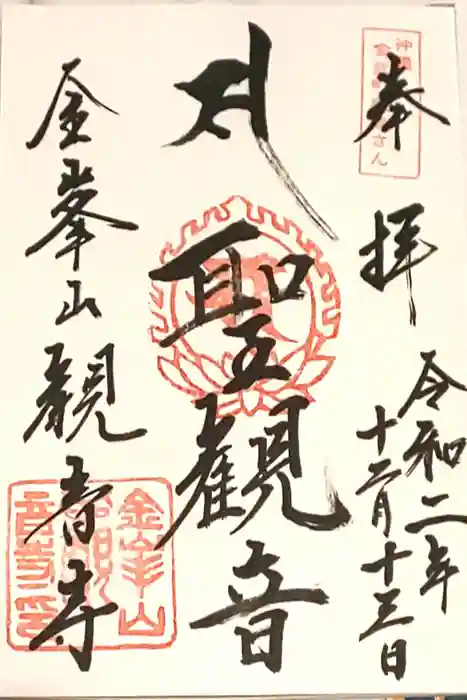 奉拝
令和二年
十二月十三日
聖観音
金峯山観音寺
金峯山